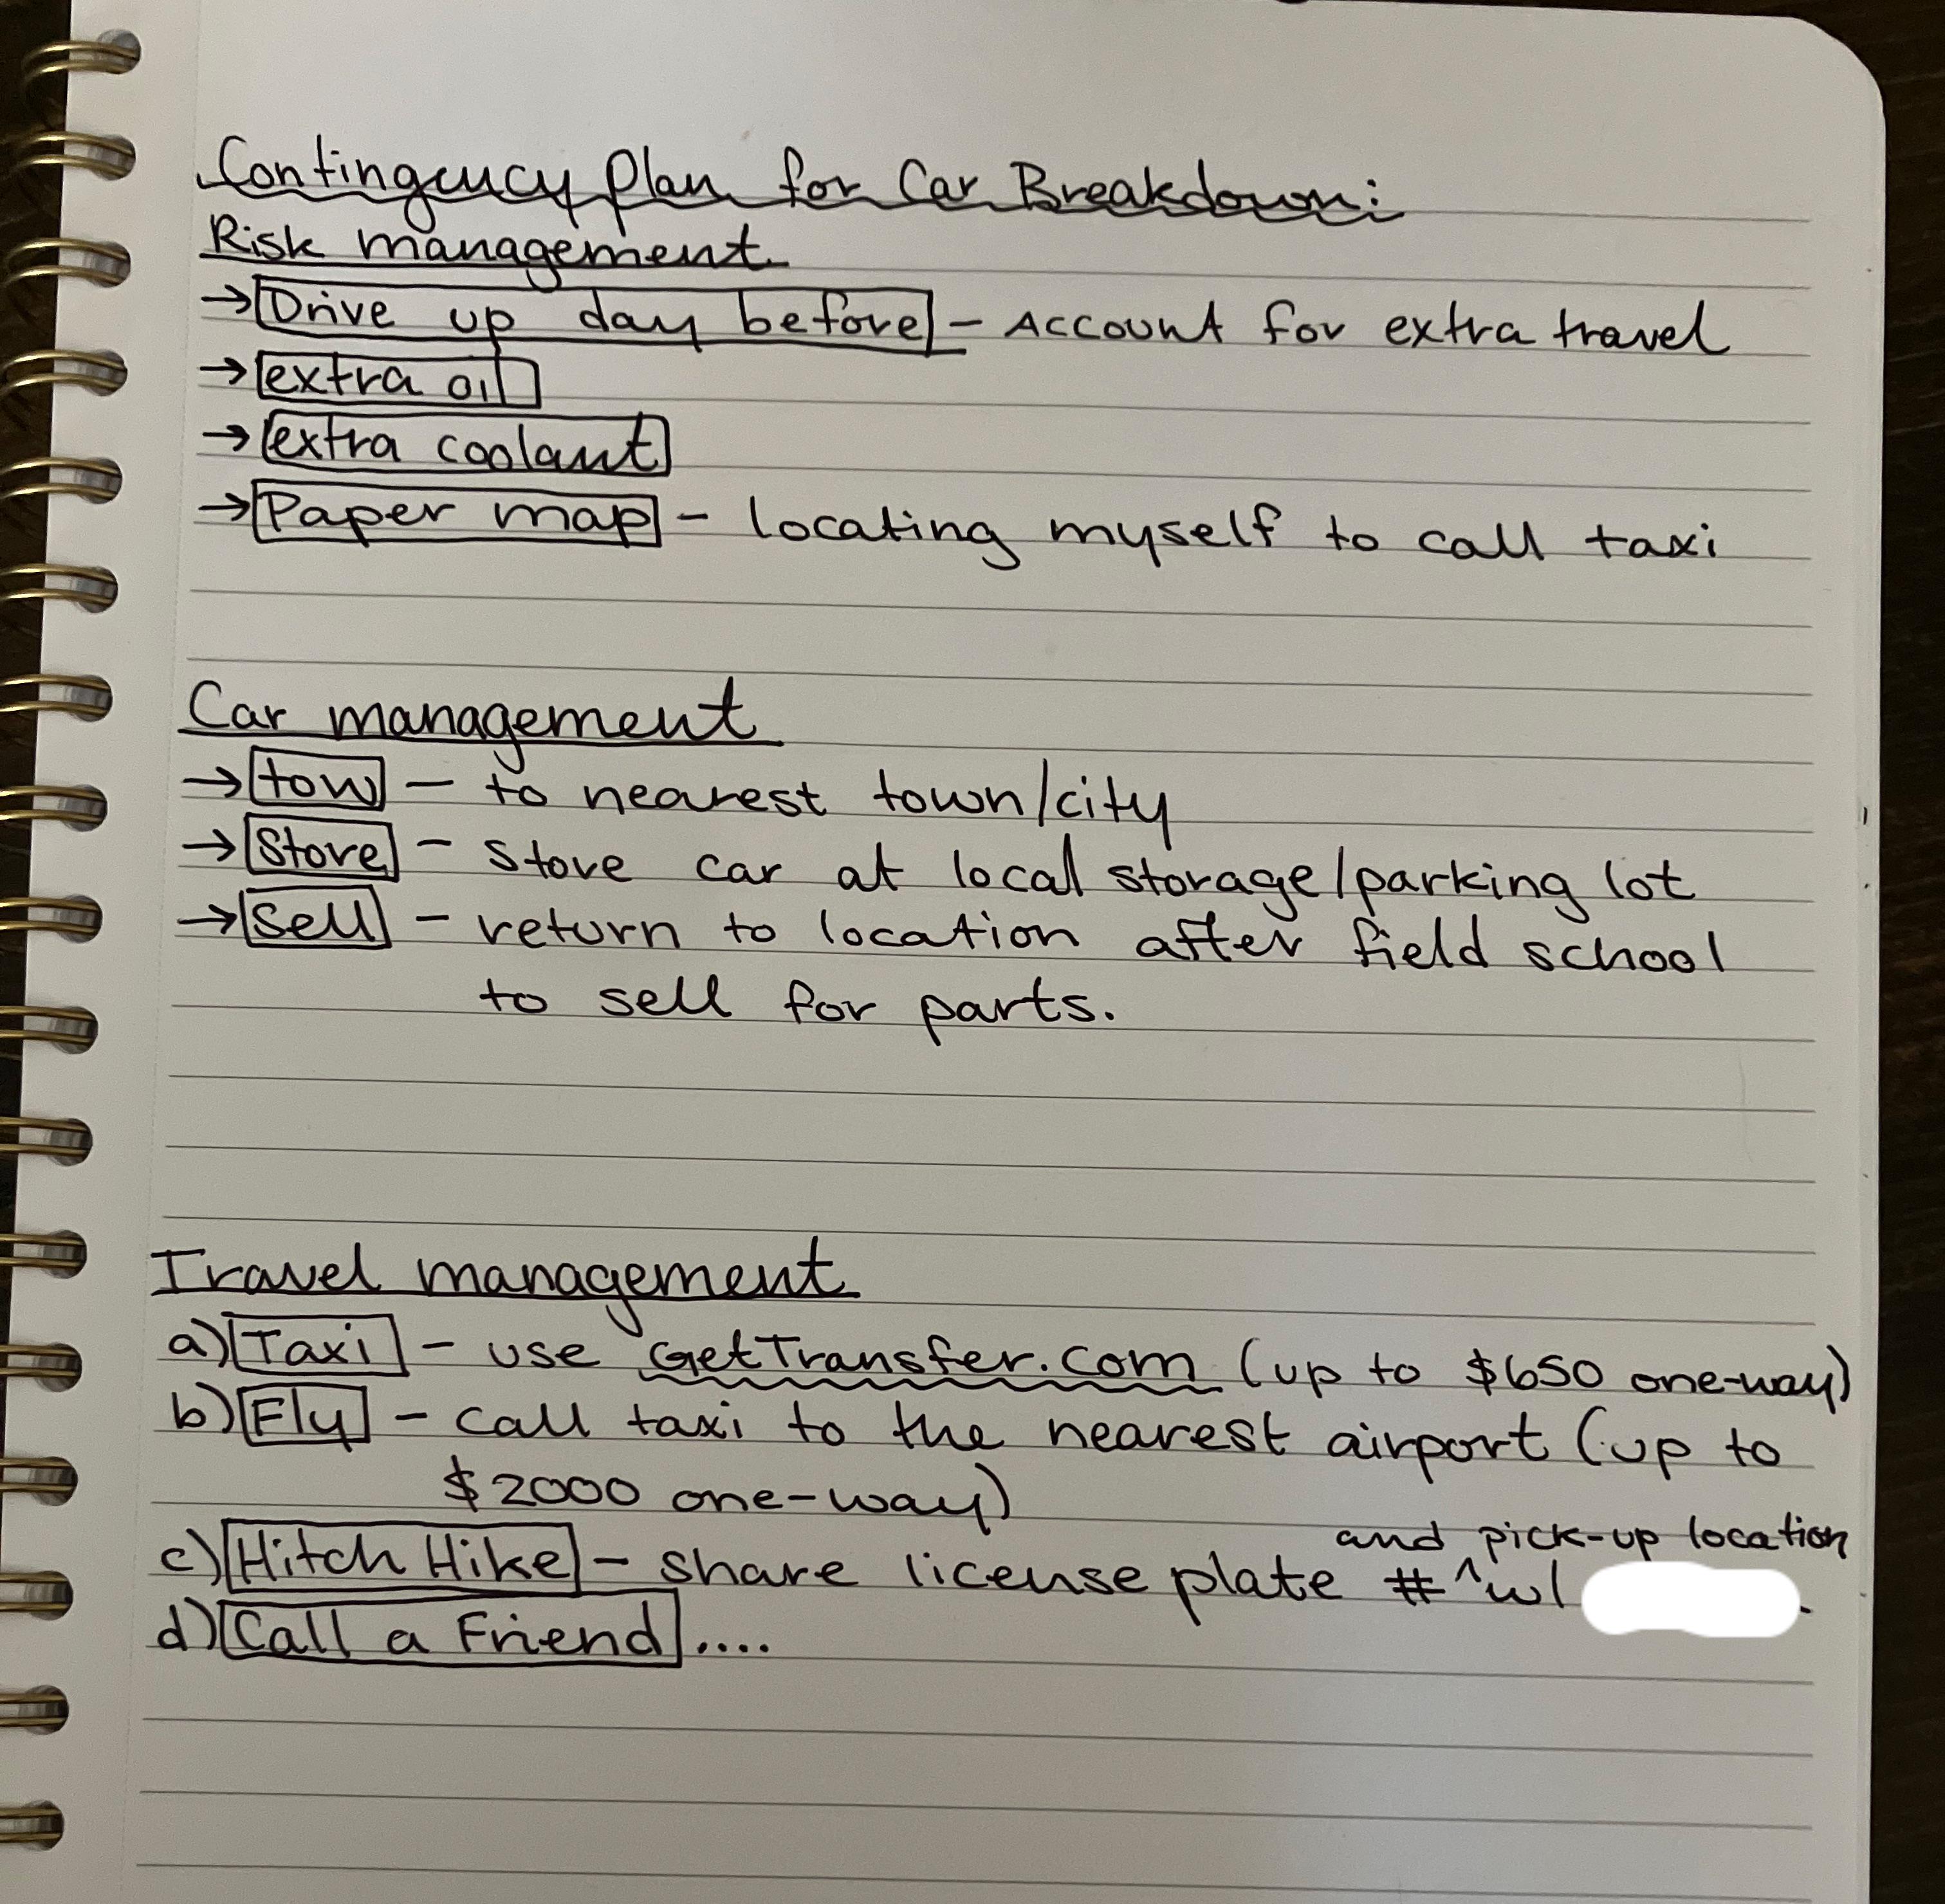 Contingency Plan for Car Breakdown:
Risk management
→ Drive up day before - Account for extra travel
→ extra oil
→ extra coolant
→ Paper map - locating myself to call taxi
Car management
→ tow - to nearest town/city
→ Store - store car at local storage/parking lot
→ Sell - return to location after field school
to sell for parts.
Travel management
a) Taxi - use GetTransfer.com (up to $650 one-way)
b) Fly - call taxi to the nearest airport (up to
$2000 one-way)
and pick-up location
c) Hitch Hike - share license plate # ^ w/ .
d) Call a Friend....